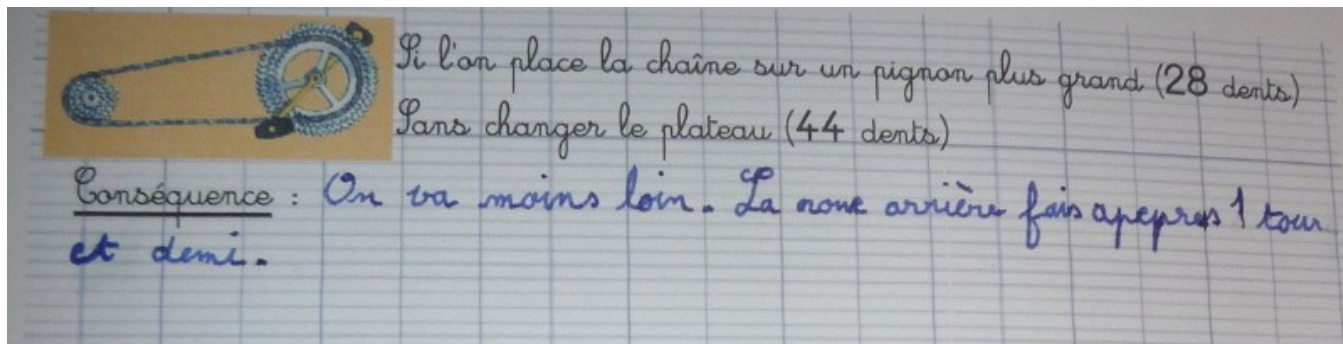 Si l'on place la chaîne sur un pignon plus grand (28 dents)
Sans changer le plateau (44 dents)
Conséquence : On va moins loin. La roue arrière fais apeprès 1 tour
et demi.